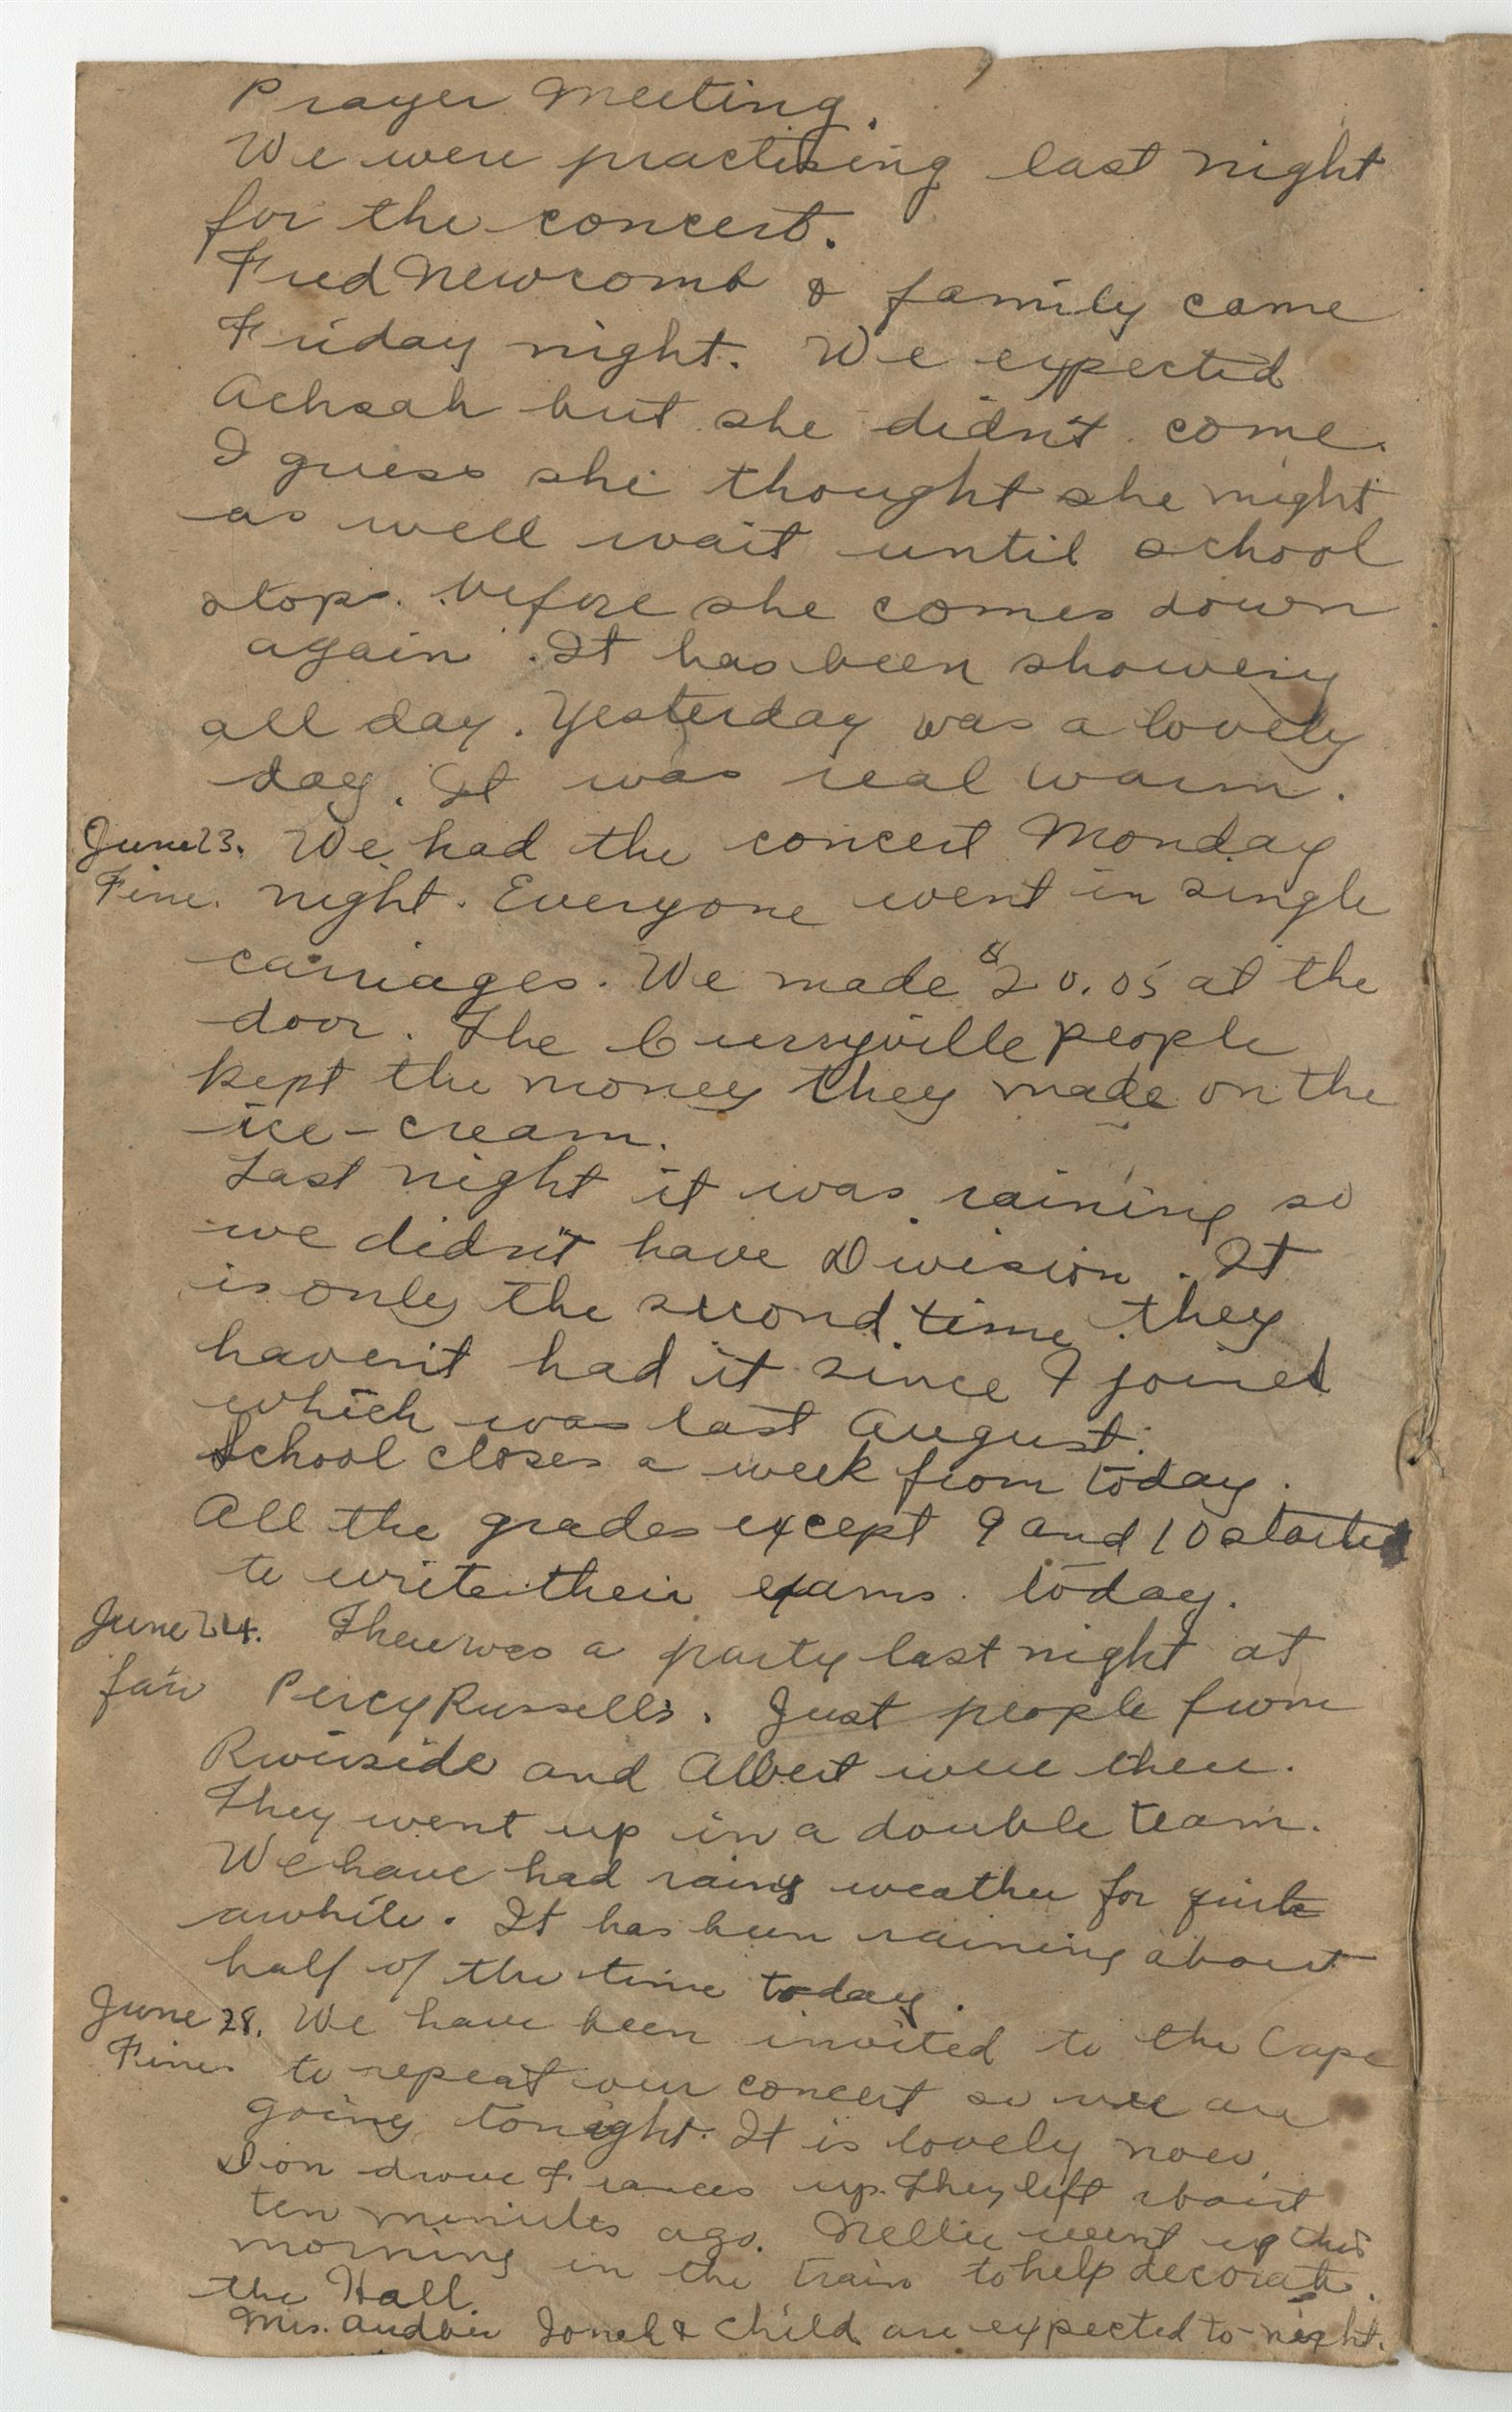 Prayer Meeting.
We were practising last night
for the concert.
Fred Newcomb & family came
Friday night. We expected
Achsah but she didn't come.
I guess she thought she might
as well wait until school
stops. before she comes down
again. It has been showery
all day. Yesterday was a lovely
day. It was real warm.
June 23. We had the concert Monday
Fine. night. Everyone went in single
carriages. We made $20.05 at the
door. The Curryville people
kept the money they made on the
ice-cream.
Last night it was raining so
we didn't have Division. It
is only the second time they
haven't had it since I joined
which was last August.
School closes a week from today.
All the grades except 9 and 10 started
to write their exams today.
June 24. There was a party last night at
fair Percy Russell's. Just people from
Riverside and Albert were there.
They went up in a double team.
We have had rainy weather for quite
awhile. It has been raining about
half of the time today.
June 28. We have been invited to the Cape
Fine. to repeat our concert so we are
going tonight. It is lovely now.
Don drove Frances up. They left about
ten minutes ago. Nellie went up this
morning in the train to help decorate
the Hall.
Mrs. & child are expected to-night.